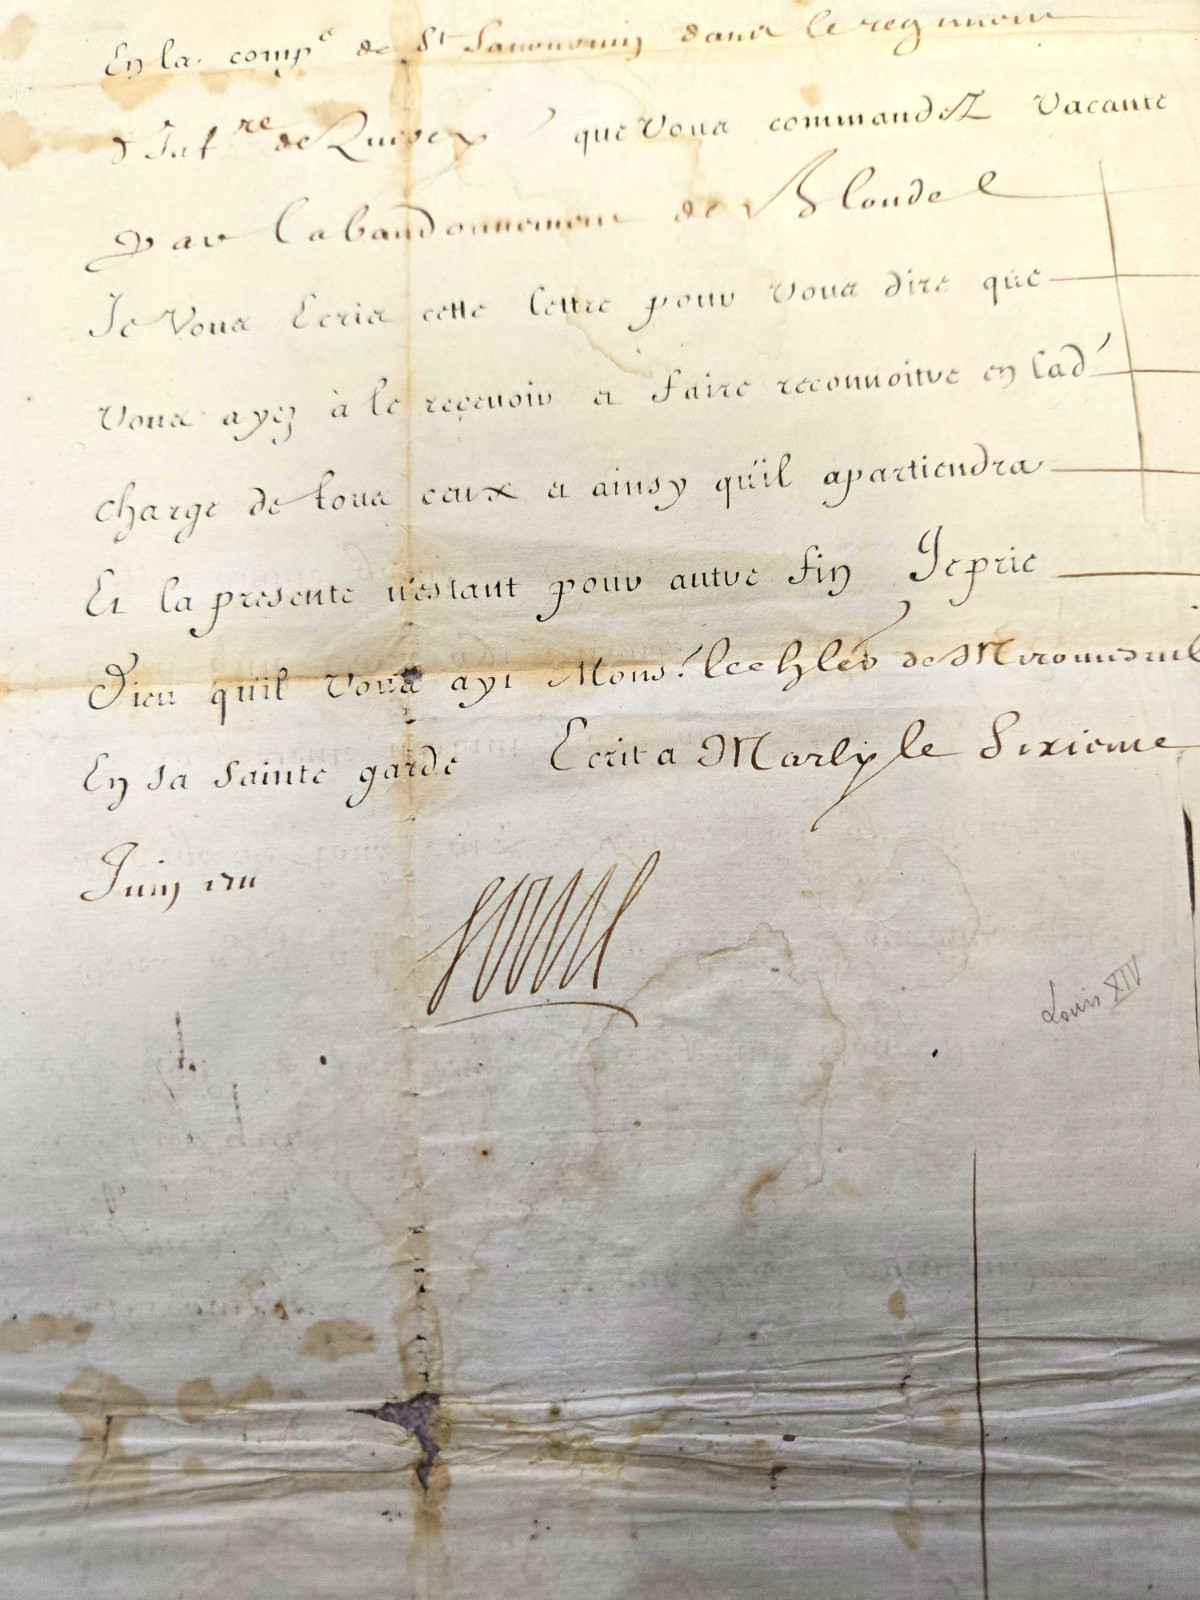 En la compe de St Savournin dans le regiment
d'Infre de Quercy que Vous commandez Vacante
par Labandonnement de Blondel
Je Vous Ecris cette lettre pour vous dire que
vous ayez à le reçevoir et faire reconnoitre en lad.
charge de tous ceux et ainsy qu'il apartiendra
Et la presente n'estant pour autre fin Je prie
Dieu qu'il Vous ayt Mons.r le chler de Miromesnil
En sa sainte garde Ecrit a Marly le Sixieme
Juin 1711
Louis
Louis XIV